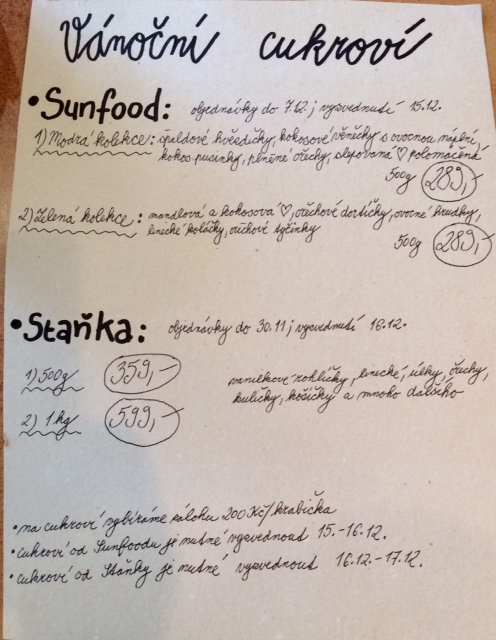 Vánoční cukroví
• Sunfood: objednávky do 7.12. j vyzvednutí 15.12.
1) Modrá kolekce: špaldové hvězdičky, kokosové věnečky s ovocnou náplní,
kokos. pusinky, plněné ořechy, slepovaná ♡ polomáčená
500g 289,-
2) Zelená kolekce: mandlová a kokosová ♡, ořechové dortičky, ovocné hrudky,
linecké koláčky, ořechové tyčinky
500g 289,-
• Staňka: objednávky do 30.11 j vyzvednutí 16.12.
1) 500g 359,- vanilkové rohlíčky, linecké, úlky, ořechy,
2) 1 kg 599,- kuličky, košíčky a mnoho dalšího
• na cukroví vybíráme zálohu 200 Kč/krabička
• cukroví od Sunfoodu je nutné vyzvednout 15.-16.12.
• cukroví od Staňky je nutné vyzvednout 16.12.-17.12.